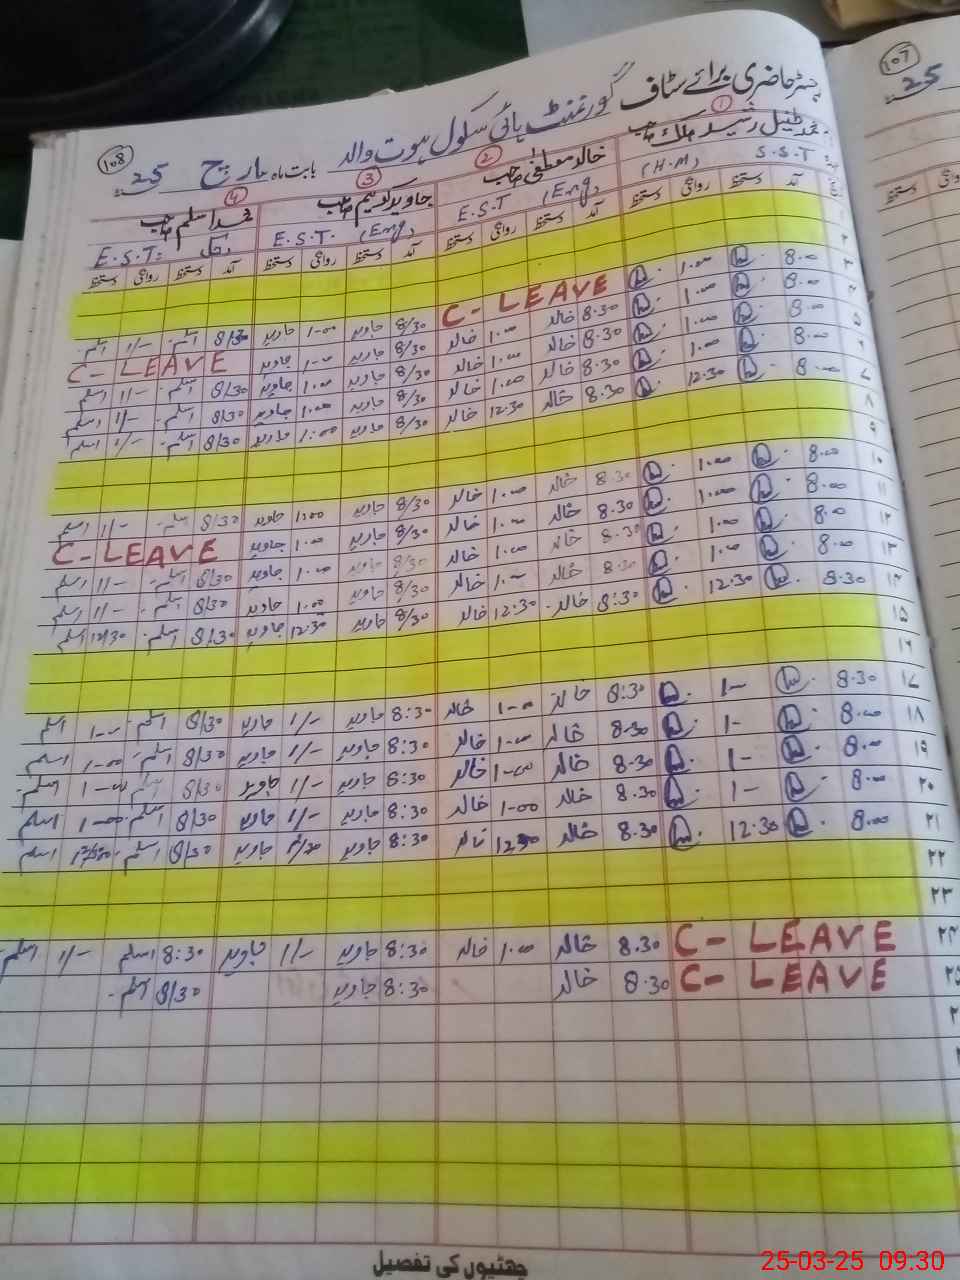 رجسٹر حاضری برائے سٹاف گورنمنٹ ہائی سکول ہوت والد بابت ماہ مارچ 25
108
107
25
① محمد طفیل رشید ملک صاحب
S.S.T (H.M)
② خالد مصطفیٰ صاحب
E.S.T (Eng)
③ جاوید صاحب
E.S.T. (Eng)
④ محمد اسلم صاحب
E.S.T.
آمد دستخط روانگی دستخط آمد دستخط روانگی دستخط آمد دستخط روانگی دستخط آمد دستخط روانگی دستخط
۱
۲
۳ 8.00 1.00 C-LEAVE 8/30 جاوید 1-00 جاوید 8/30 اسلم 1/- اسلم
۴ 8.00 1.00 8.30 خالد 1.00 خالد 8/30 جاوید 1-00 جاوید C-LEAVE
۵ 8.00 1.00 8.30 خالد 1.00 خالد 8/30 جاوید 1.00 جاوید 8/30 اسلم 1/- اسلم
۶ 8.00 1.00 8.30 خالد 1.00 خالد 8/30 جاوید 1.00 جاوید 8/30 اسلم 1/- اسلم
۷ 8.00 12.30 8.30 خالد 12.30 خالد 8/30 جاوید 1:00 جاوید 8/30 اسلم 1/- اسلم
۸
۹
۱۰ 8.00 1.00 8.30 خالد 1.00 خالد 8/30 جاوید 1.00 جاوید 8/30 اسلم 1/- اسلم
۱۱ 8.00 1.00 8.30 خالد 1.00 خالد 8/30 جاوید 1.00 جاوید C-LEAVE
۱۲ 8.00 1.00 8.30 خالد 1.00 خالد 8/30 جاوید 1.00 جاوید 8/30 اسلم 1/- اسلم
۱۳ 8.00 1.00 8.30 خالد 1.00 خالد 8/30 جاوید 1.00 جاوید 8/30 اسلم 1/- اسلم
۱۴ 8.30 12.30 8:30 خالد 12:30 خالد 8/30 جاوید 12:30 جاوید 8/30 اسلم 12/30 اسلم
۱۵
۱۶
۱۷ 8.30 1- 8:30 خالد 1-00 خالد 8:30 جاوید 1/- جاوید 8/30 اسلم 1-00 اسلم
۱۸ 8.00 1- 8.30 خالد 1-00 خالد 8:30 جاوید 1/- جاوید 8/30 اسلم 1-00 اسلم
۱۹ 8.00 1- 8.30 خالد 1-00 خالد 8:30 جاوید 1/- جاوید 8/30 اسلم 1-00 اسلم
۲۰ 8.00 1- 8.30 خالد 1-00 خالد 8:30 جاوید 1/- جاوید 8/30 اسلم 1-00 اسلم
۲۱ 8.00 12.30 8.30 خالد 1230 خالد 8:30 جاوید جاوید 8/30 اسلم اسلم
۲۲
۲۳
۲۴ C-LEAVE 8.30 خالد 1.00 خالد 8:30 جاوید 1/- جاوید 8:30 اسلم 1/- اسلم
۲۵ C-LEAVE 8.30 خالد 8:30 جاوید 8/30 اسلم
چھٹیوں کی تفصیل
25-03-25 09.30